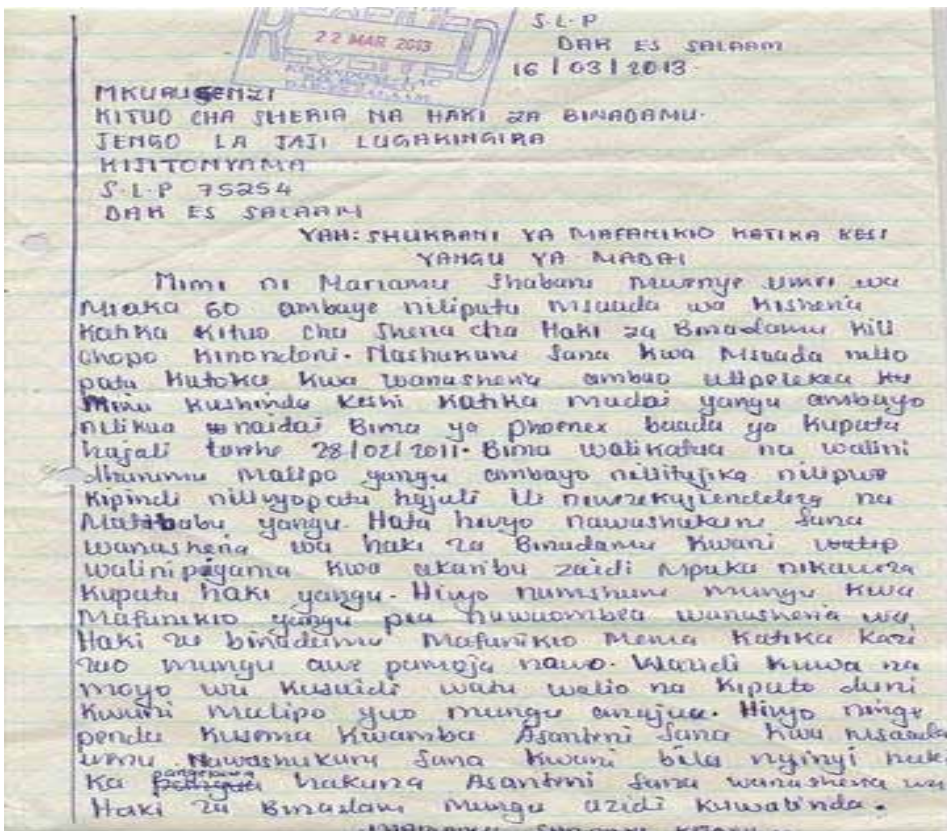 S.L.P
DAR ES SALAAM
22 MAR 2013
16/03/2013
MKURUGENZI
KITUO CHA SHERIA NA HAKI ZA BINADAMU.
JENGO LA JAJI LUGAKINGIRA
KIJITONYAMA
S.L.P 75254
DAR ES SALAAM
YAH: SHUKRANI YA MAFANIKIO KATIKA KESI
YANGU YA MADAI
Mimi ni Mariamu Shabani mwenye umri wa
Miaka 60 ambaye nilipata msaada wa Kisheria
Katika Kituo cha Sheria cha Haki za Binadamu Kili
chopo Kinondoni. Nashukuru Sana Kwa Msaada nilio
pata Kutoka Kwa wanasheria ambao ulipelekea Ku
Mimi Kushinda Keshi Katika madai yangu ambayo
nilikua naidai Bima ya phoenex baada ya Kupata
hajali tarehe 28/02/2011. Bima walikataa na walini
dhurumu Malipo yangu ambayo nilitajika nilipwe
Kipindi nilivyopata hajali ili niweze kujiendeleza na
Matibabu yangu. Hata hivyo nawashukuru Sana
wanasheria wa haki za Binadamu Kwani
walinipigania Kwa ukaribu zaidi Mpaka nikaweza
Kupata haki yangu. Hivyo namshuru mungu Kwa
Mafanikio yangu pia nawaombea wanasheria wa
Haki za binadamu Mafanikio Mema Katika Kazi
zao mungu awe pamoja nawo. Wazidi Kuwa na
moyo wa Kusaidi watu walio na Kipato duni
Kwani malipo yao mungu anajua. Hivyo ninge
penda Kusema Kwamba Asanteni Sana Kwa msaada
wenu Nawashukuru Sana Kwani bila nyinyi haki
Ka pangekuwa hakuna Asanteni Sana wanasheria wa
Haki za Binadamu Mungu azidi Kuwalinda.